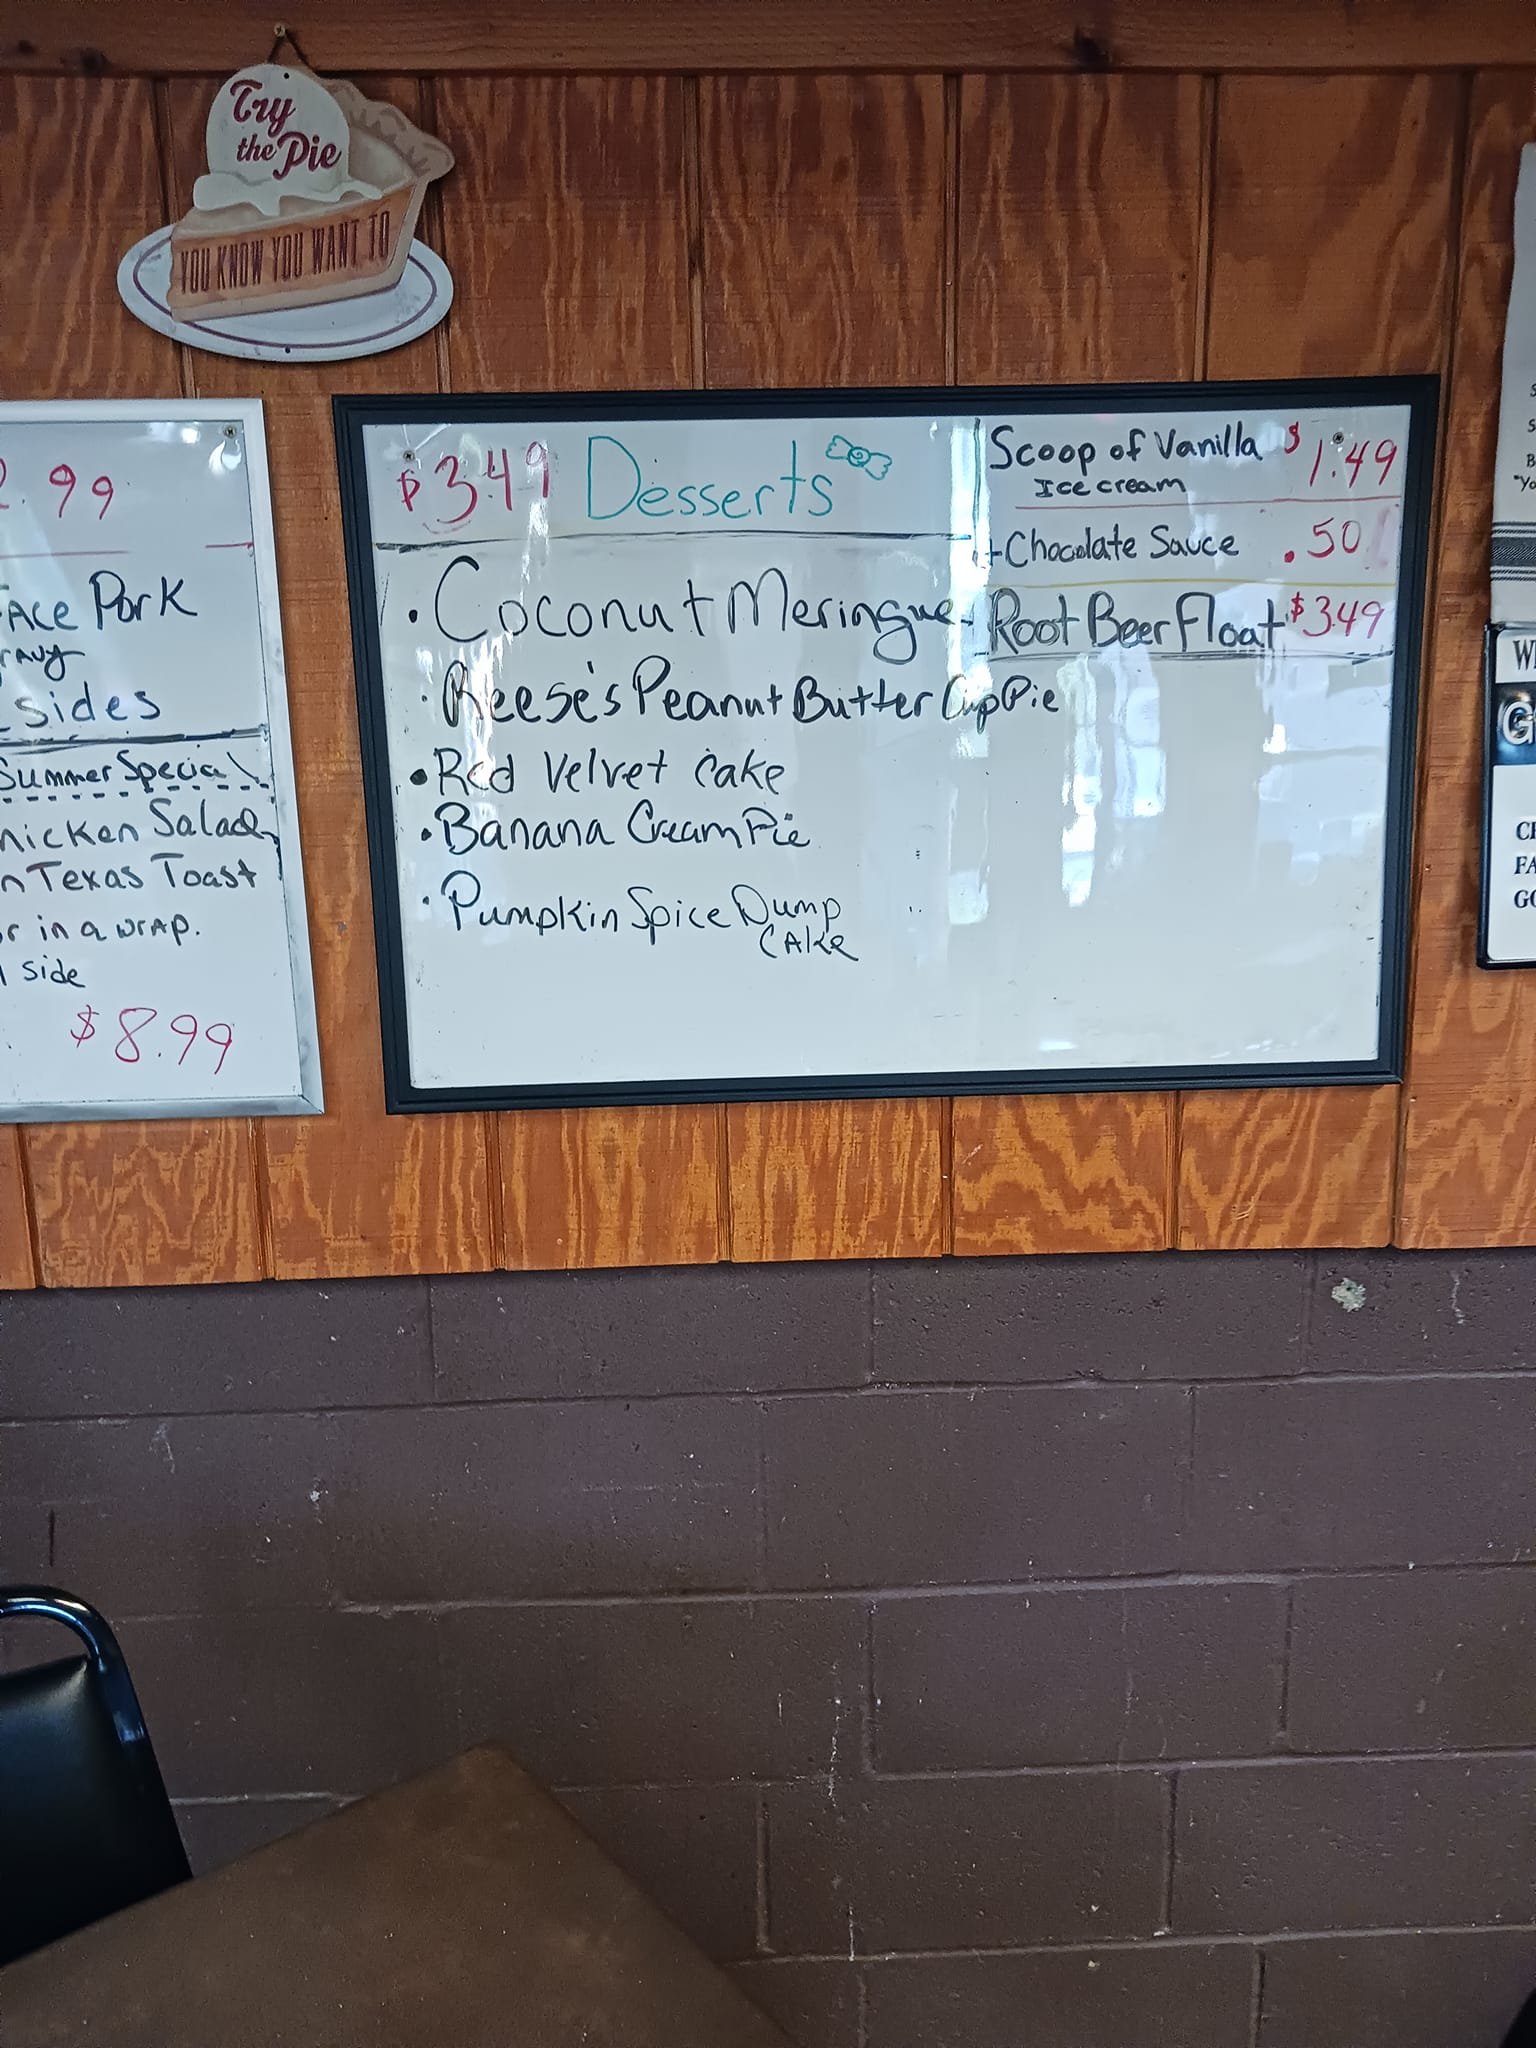 Try
the Pie
YOU KNOW YOU WANT TO
.99
Pork
Sides
Summer Special
Salad
Texas Toast
in a wrap.
side
$8.99
$3.49 Desserts
• Coconut Meringue
• Reese's Peanut Butter Cup Pie
• Red Velvet Cake
• Banana Cream Pie
• Pumpkin Spice Dump
CAke
Scoop of Vanilla $1.49
Ice cream
+Chocolate Sauce .50
Root Beer Float $3.49